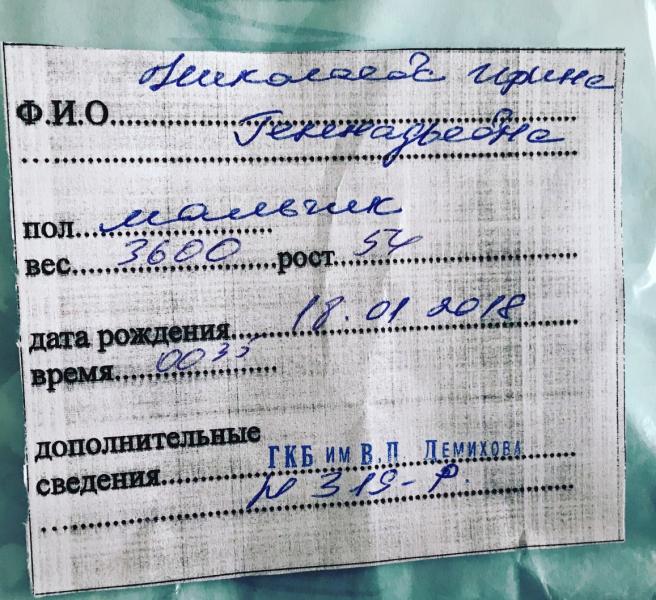 Николаева Ирина
Ф.И.О.
Геннадьевна
пол...мальчик
вес...3600...рост...54
дата рождения...18.01 2018
время...00 35
дополнительные
ГКБ им В.П. Демихова
сведения
N 319-Р.